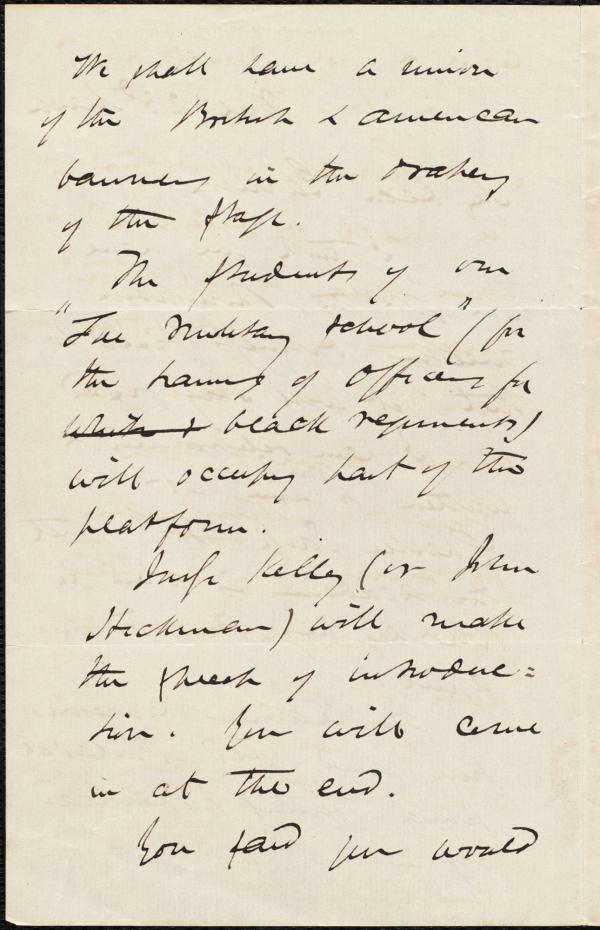 We shall have a union
of the British & american
banners in the drapery
of the stage.
The students of our
"Free Military school" (for
the training of officers for
white & black regiments)
will occupy part of the
platform.
Judge Kelley (or John
Hickman) will make
the speech of introduc=
tion. You will come
in at the end.
You said you would